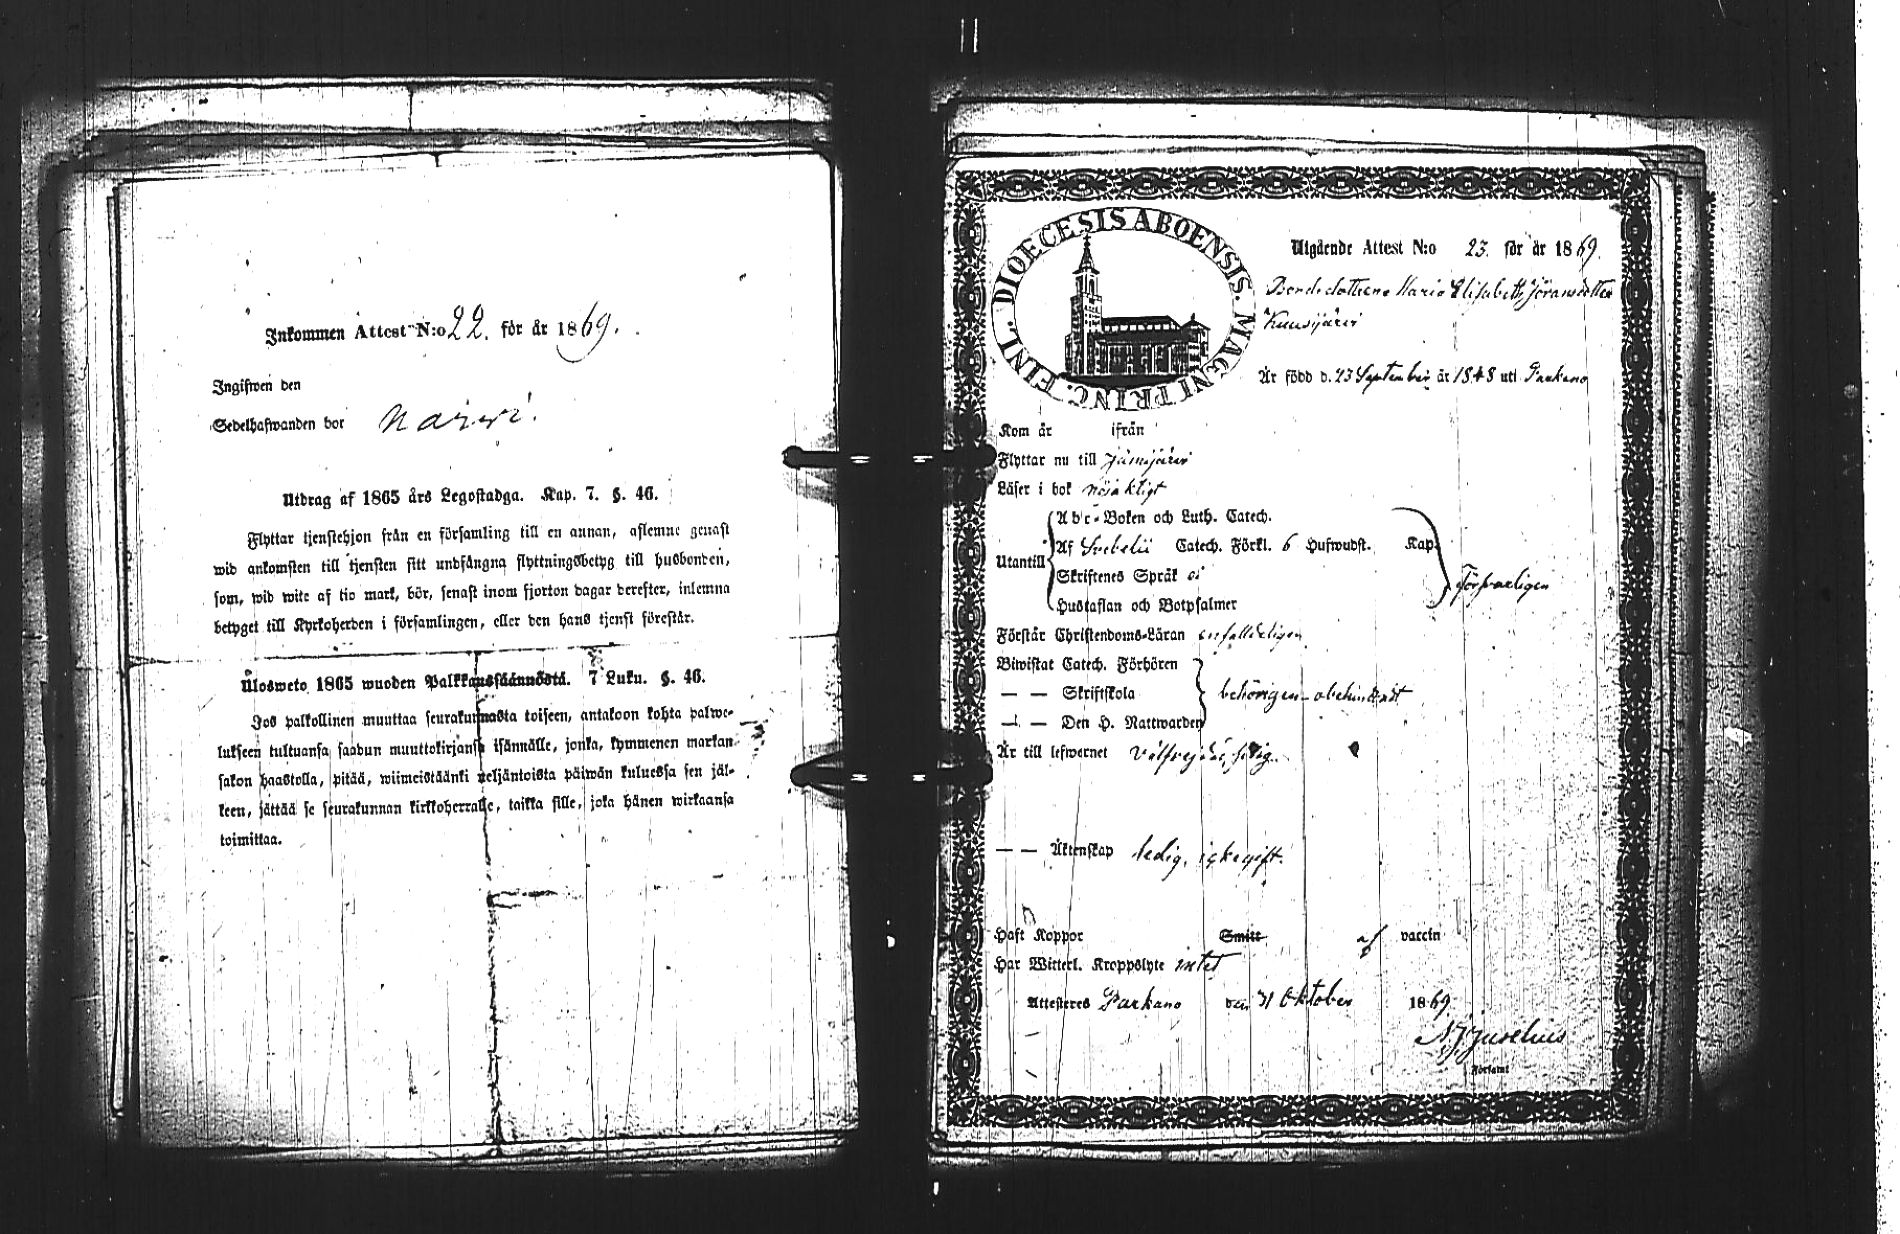 Inkommen Attest N:o 22. för år 1869.
Ingifwen den
Sedelhafwanden bor
Utdrag af 1865 års Legostadga. Kap. 7. §. 46.
Flyttar tjenstehjon från en församling till en annan, aflemne genast
wid ankomsten till tjensten sitt undfångna flyttningsbetyg till husbonden,
som, wid wite af tio mark, bör, senast inom fjorton dagar derefter, inlemna
betyget till Kyrkoherden i församlingen, eller den hans tjenst förestår.
Ulosweto 1865 wuoden Palkkaussäännöstä. 7 Luku. §. 46.
Jos palkollinen muuttaa seurakunnasta toiseen, antakoon kohta palwe-
lukseen tultuansa saadun muuttokirjansa isännälle, jonka, kymmenen markan
sakon haastolla, pitää, wiimeistäänki neljäntoista päiwän kuluessa sen jäl-
keen, jättää se seurakunnan kirkkoherralle, taikka sille, joka hänen wirkaansa
toimittaa.
DIOECESIS ABOENSIS. MAGNI PRINC. FINL.
Utgående Attest N:o 23. för år 1869.
Bondedottren Maria Elisabeth Jöransdotter
Kuusijärvi
Är född d. 23 September år 1848 uti Parkano
Kom år ifrån
Flyttar nu till Jämijärvi
Läser i bok nöjaktigt
Utantill
Abc-Boken och Luth. Catech.
Af Svebelii Catech. Förkl. 6 Hufwudst. Kap.
Skriftenes Språk
Hustaflan och Botpsalmer
Försvarligen
Förstår Christendoms-Läran enfalldeligen
Biwistat Catech. Förhören
— — Skriftskola
— — Den H. Nattwarden
behörigen - obehindrat
Är till lefwernet välfrejdad,
— — Äktenskap ledig, icke gift.
Haft Koppor Smitt af vaccin
Har Witterl. Kroppslyte intet
Attesteras Parkano den 31 Oktober 1869.
Juselius